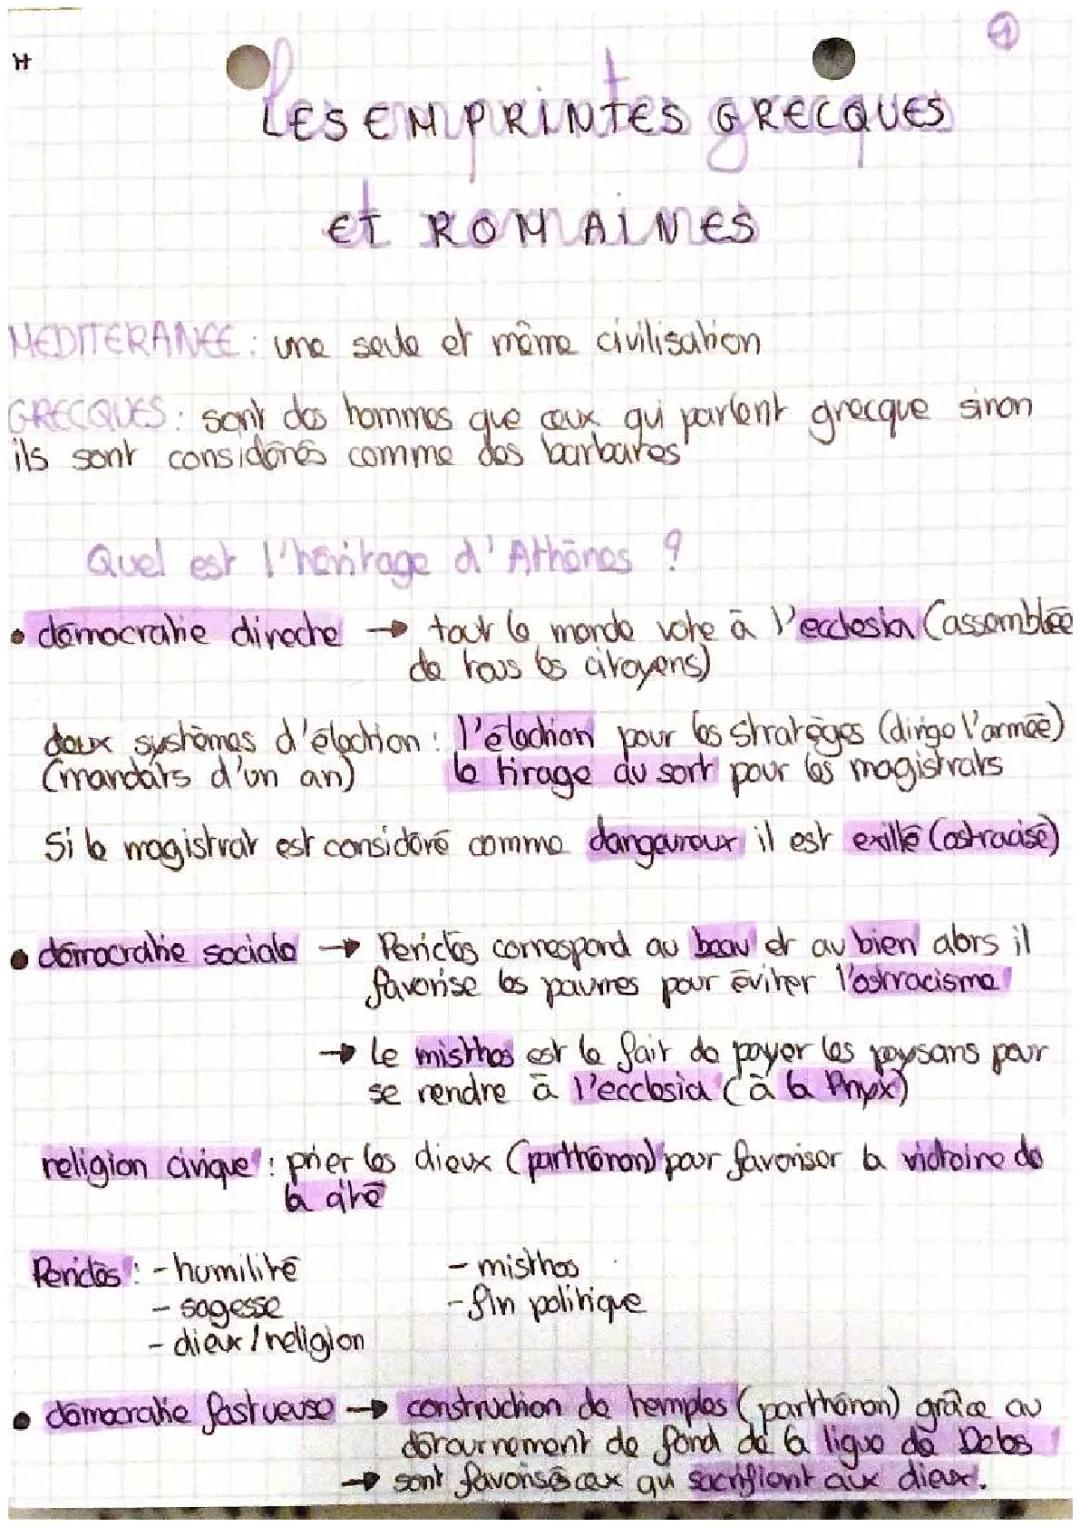 ①
H
LES EMPRINTES GRECQUES
et ROMAINES
MEDITERANEE : une seule et même civilisation
GRECQUES : sont des hommes que ceux qui parlent grecque sinon
ils sont considérés comme des barbares
Quel est l'héritage d'Athènes ?
• démocratie directe → tout le monde vote à l'ecclesia (assemblée
de tous les citoyens)
deux systèmes d'élection : l'élection pour les stratèges (dirige l'armée)
(mandats d'un an) le tirage au sort pour les magistrats
Si le magistrat est considéré comme dangeureux il est exillé (ostracisé)
• démocratie sociale → Périclès correspond au beau et au bien alors il
favorise les pauvres pour éviter l'ostracisme
→ Le misthos est le fait de payer les paysans pour
se rendre à l'ecclesia (à la Pnyx)
religion civique : prier les dieux (parthénon) pour favoriser la victoire de
la cité
Périclès : - humilité - misthos
- sagesse - fin politique
- dieux / religion
• démocratie fastueuse → construction de temples (parthénon) grâce au
détournement de fond de la ligue de Délos
→ sont favorisés ceux qui sacrifient aux dieux.